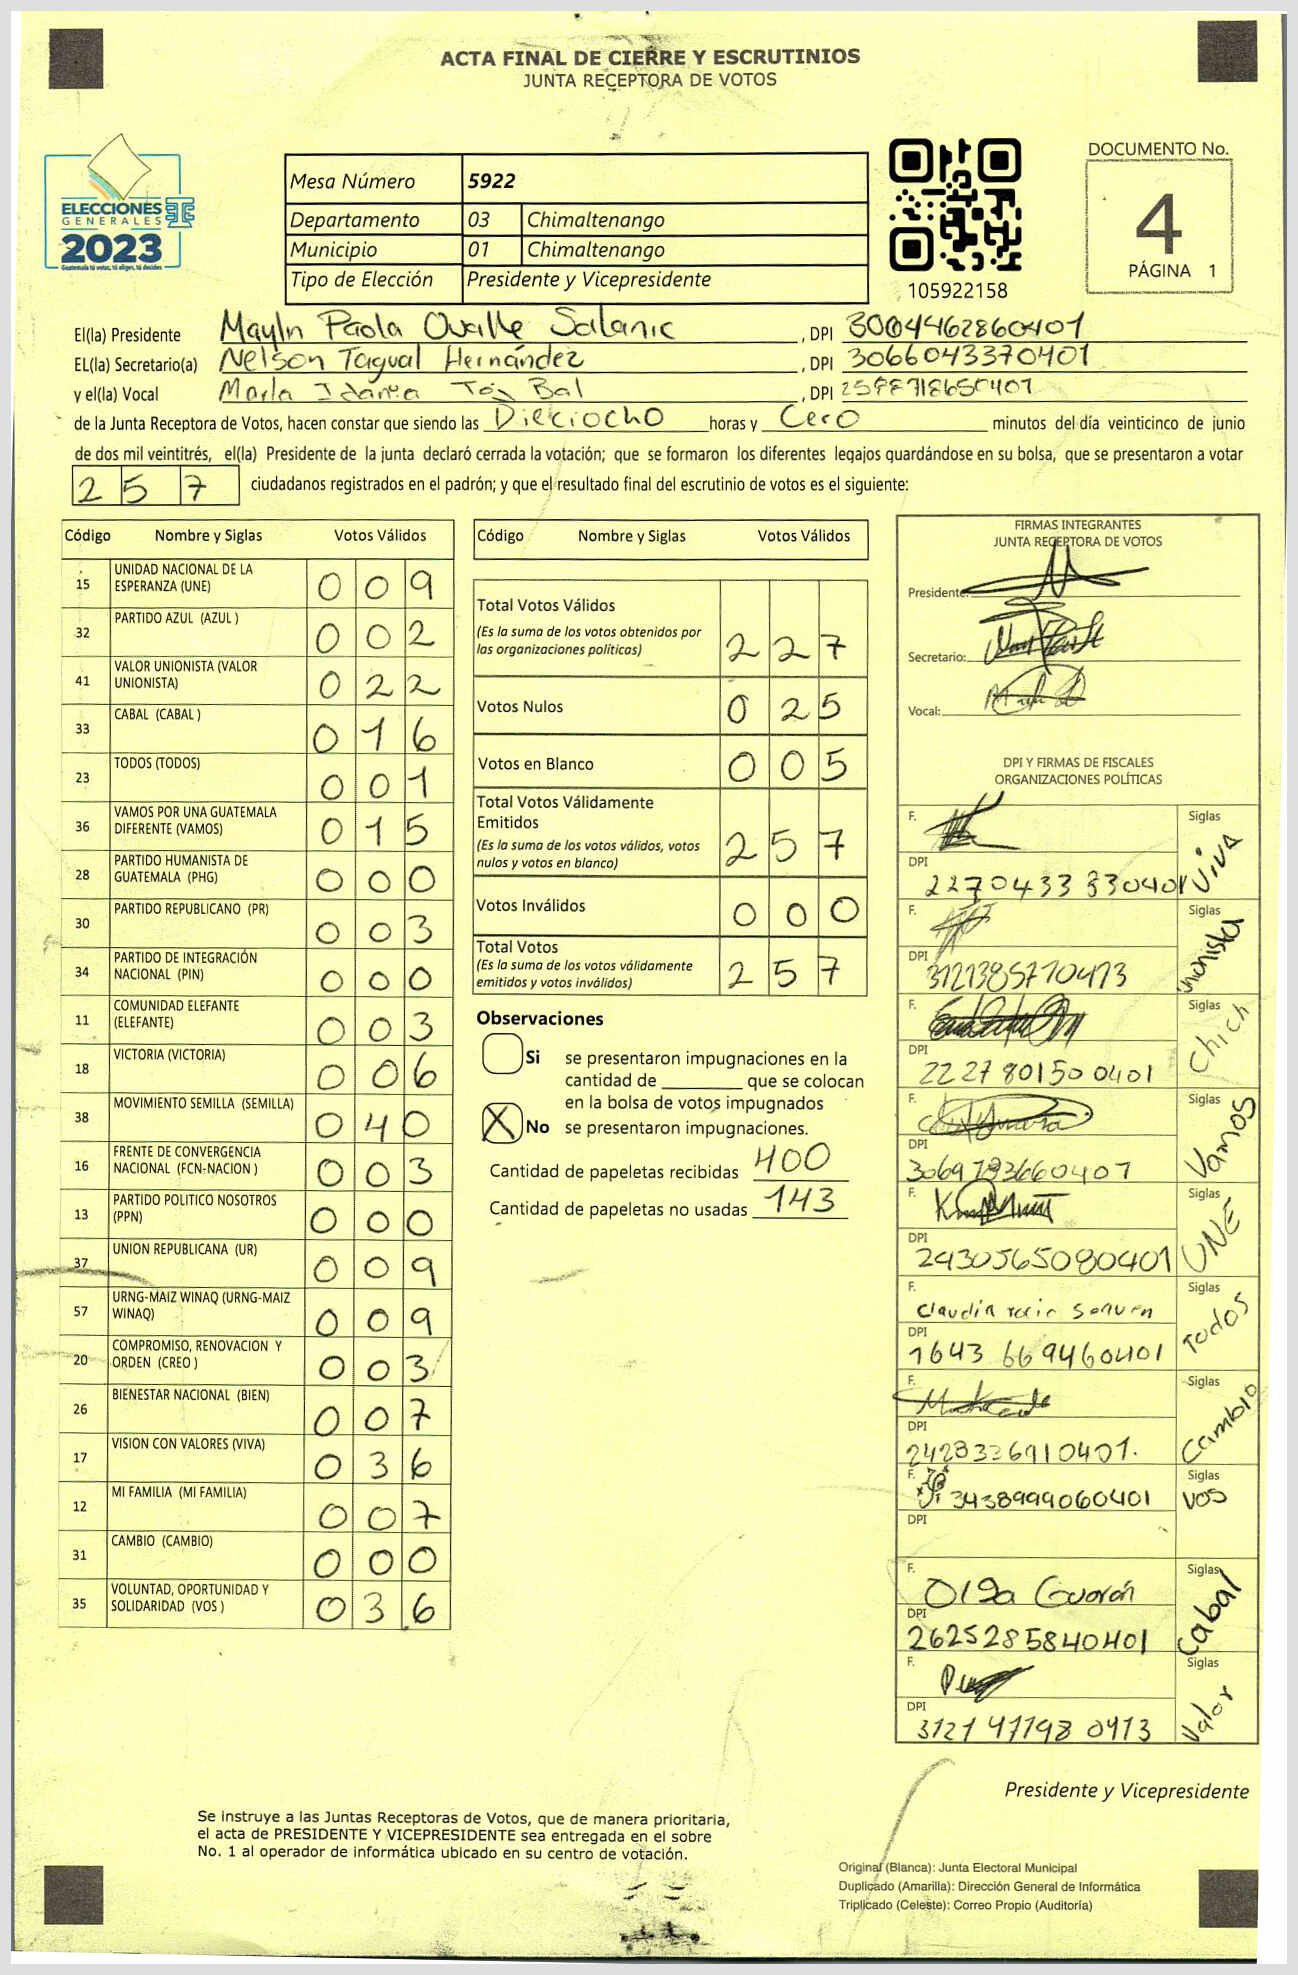 ACTA FINAL DE CIERRE Y ESCRUTINIOS
JUNTA RECEPTORA DE VOTOS
ELECCIONES
GENERALES
2023
Guatemala tú votas, tú eliges, tú decides
Mesa Número 5922
Departamento 03 Chimaltenango
Municipio 01 Chimaltenango
Tipo de Elección Presidente y Vicepresidente
105922158
DOCUMENTO No.
4
PÁGINA 1
El(la) Presidente Maylin Paola Ovalle Salanic , DPI 3004462860401
EL(la) Secretario(a) Nelson Tagual Hernández , DPI 3066043370401
y el(la) Vocal Bal , DPI
de la Junta Receptora de Votos, hacen constar que siendo las Dieciocho horas y Cero minutos del día veinticinco de junio
de dos mil veintitrés, el(la) Presidente de la junta declaró cerrada la votación; que se formaron los diferentes legajos quardándose en su bolsa, que se presentaron a votar
257 ciudadanos registrados en el padrón; y que el resultado final del escrutinio de votos es el siguiente:
Código Nombre y Siglas Votos Válidos
15 UNIDAD NACIONAL DE LA ESPERANZA (UNE) 009
32 PARTIDO AZUL (AZUL ) 002
41 VALOR UNIONISTA (VALOR UNIONISTA) 022
33 CABAL (CABAL ) 016
23 TODOS (TODOS) 001
36 VAMOS POR UNA GUATEMALA DIFERENTE (VAMOS) 015
28 PARTIDO HUMANISTA DE GUATEMALA (PHG) 000
30 PARTIDO REPUBLICANO (PR) 003
34 PARTIDO DE INTEGRACIÓN NACIONAL (PIN) 000
11 COMUNIDAD ELEFANTE (ELEFANTE) 003
18 VICTORIA (VICTORIA) 006
38 MOVIMIENTO SEMILLA (SEMILLA) 040
16 FRENTE DE CONVERGENCIA NACIONAL (FCN-NACION ) 003
13 PARTIDO POLITICO NOSOTROS (PPN) 000
37 UNION REPUBLICANA (UR) 009
57 URNG-MAIZ WINAQ (URNG-MAIZ WINAQ) 009
20 COMPROMISO, RENOVACION Y ORDEN (CREO ) 003
26 BIENESTAR NACIONAL (BIEN) 007
17 VISION CON VALORES (VIVA) 036
12 MI FAMILIA (MI FAMILIA) 007
31 CAMBIO (CAMBIO) 000
35 VOLUNTAD, OPORTUNIDAD Y SOLIDARIDAD (VOS ) 036
Código Nombre y Siglas Votos Válidos
Total Votos Válidos 227
(Es la suma de los votos obtenidos por
las organizaciones políticas)
Votos Nulos 025
Votos en Blanco 005
Total Votos Válidamente
Emitidos 257
(Es la suma de los votos válidos, votos
nulos y votos en blanco)
Votos Inválidos 000
Total Votos 257
(Es la suma de los votos válidamente
emitidos y votos inválidos)
Observaciones
Si se presentaron impugnaciones en la
cantidad de ________ que se colocan
en la bolsa de votos impugnados
X No se presentaron impugnaciones.
Cantidad de papeletas recibidas 400
Cantidad de papeletas no usadas 143
FIRMAS INTEGRANTES
JUNTA RECEPTORA DE VOTOS
Presidente:
Secretario:
Vocal:
DPI Y FIRMAS DE FISCALES
ORGANIZACIONES POLÍTICAS
F. Siglas VIVA
DPI 2270433330401
F. Siglas Unionista
DPI 3121385770413
F. Siglas
DPI 2227801500401
F. Siglas Vamos
DPI 3069783660401
F. Siglas UNE
DPI 2430565080401
F. Claudia Siglas Todos
DPI 1643 669460401
F. Siglas Cambio
DPI 2428336910401.
F. 3438999060401 Siglas VOS
DPI
F. Olga Guarán Siglas Cabal
DPI 2625285840401
F. Siglas Valor
DPI 3121471980413
Presidente y Vicepresidente
Se instruye a las Juntas Receptoras de Votos, que de manera prioritaria,
el acta de PRESIDENTE Y VICEPRESIDENTE sea entregada en el sobre
No. 1 al operador de informática ubicado en su centro de votación.
Original (Blanca): Junta Electoral Municipal
Duplicado (Amarilla): Dirección General de Informática
Triplicado (Celeste): Correo Propio (Auditoría)